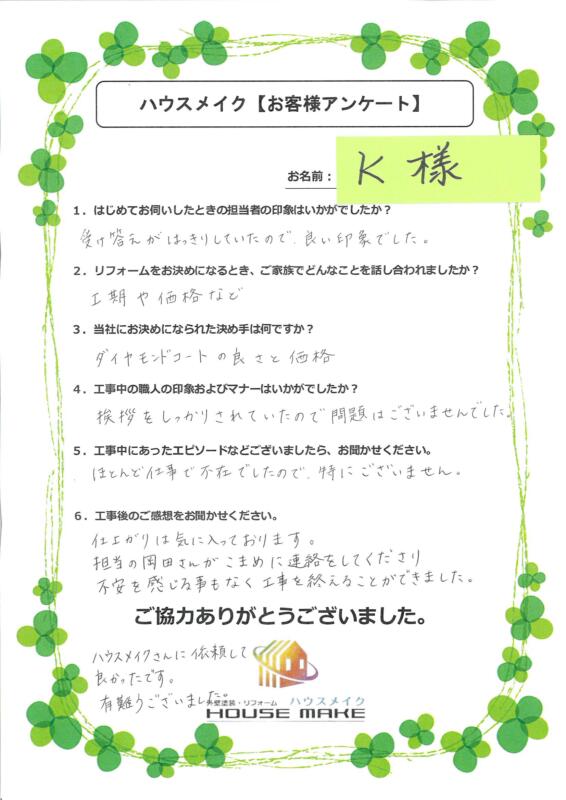 ハウスメイク【お客様アンケート】
お名前： K 様
１．はじめてお伺いしたときの担当者の印象はいかがでしたか？
受け答えがはっきりしていたので、良い印象でした。
２．リフォームをお決めになるとき、ご家族でどんなことを話し合われましたか？
工期や価格など
３．当社にお決めになられた決め手は何ですか？
ダイヤモンドコートの良さと価格
４．工事中の職人の印象およびマナーはいかがでしたか？
挨拶をしっかりされていたので問題はございませんでした。
５．工事中にあったエピソードなどございましたら、お聞かせください。
ほとんど仕事で不在でしたので、特にございません。
６．工事後のご感想をお聞かせください。
仕上がりは気に入っております。
担当の岡田さんがこまめに連絡をしてくださり
不安を感じる事もなく工事を終えることができました。
ご協力ありがとうございました。
ハウスメイクさんに依頼して
良かったです。
有難うございました。
外壁塗装・リフォーム ハウスメイク
HOUSE MAKE